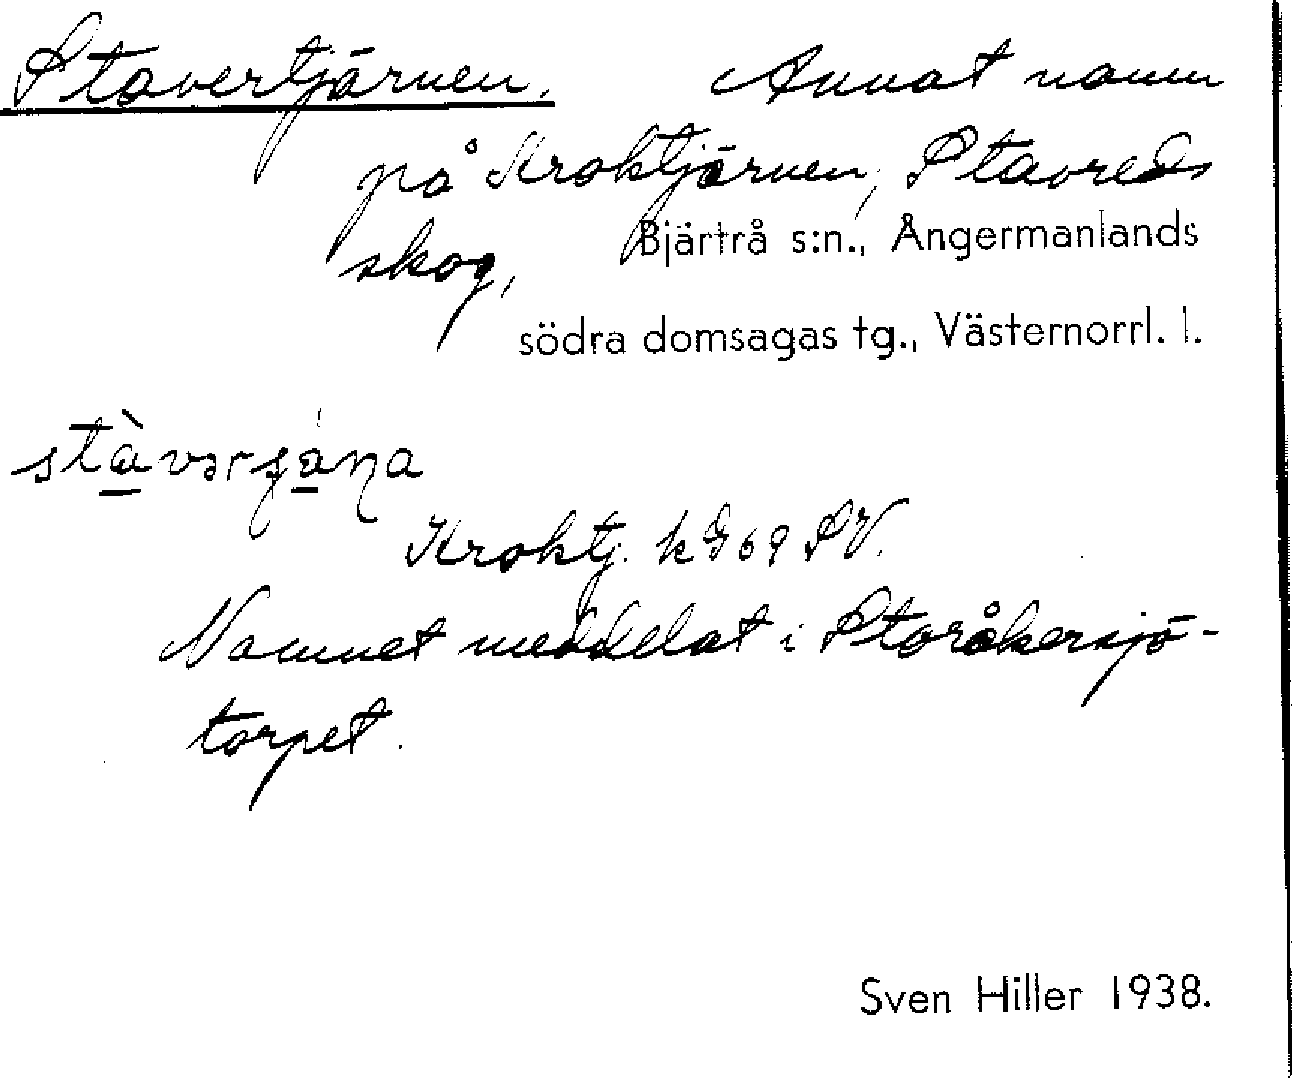 Stavertjärnen. Annat namn
på Kroktjärnen, Stavreds
skog, Bjärtrå s:n., Ångermanlands
södra domsagas tg., Västernorrl. l.
Kroktj. k G69 SV.
Namnet meddelat i Storåkersjö-
torpet.
Sven Hiller 1938.